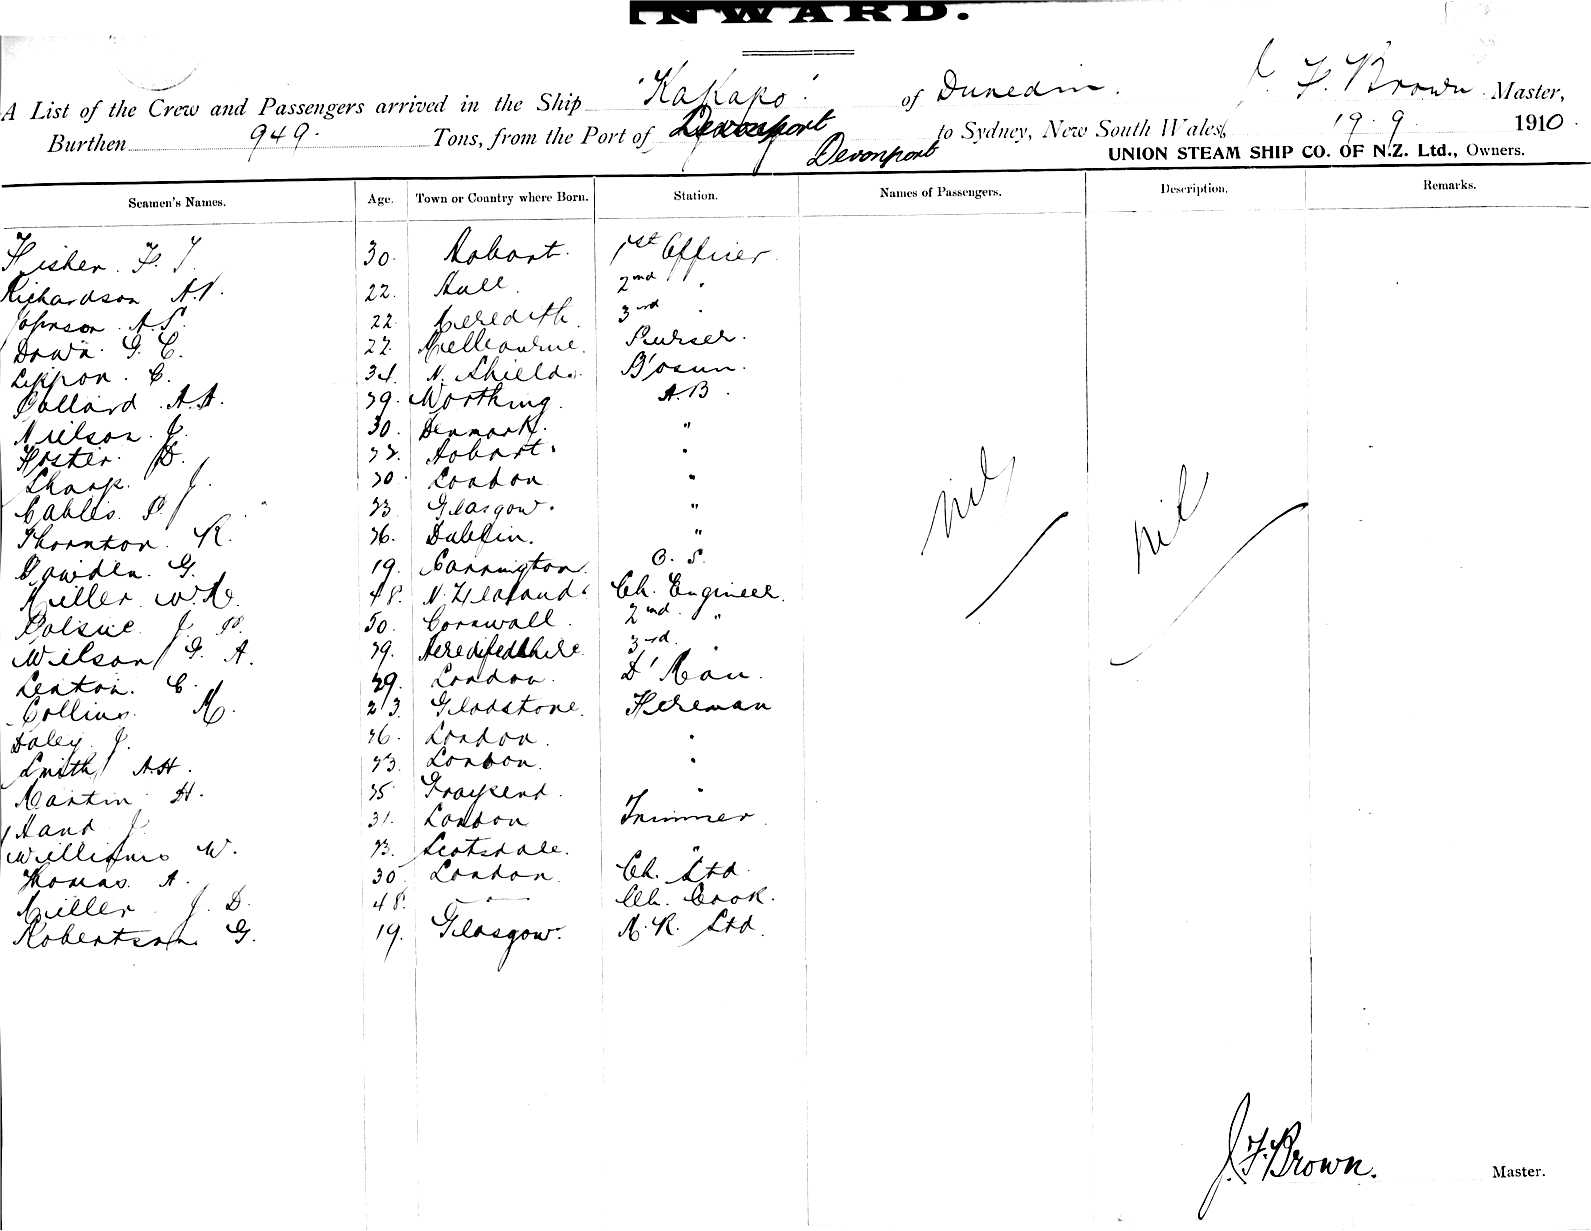 INWARD.
A List of the Crew and Passengers arrived in the Ship 'Kakapo' of Dunedin. J. F. Brown Master,
Burthen 949. Tons, from the Port of Devonport to Sydney, New South Wales, 19. 9. 1910.
Devonport UNION STEAM SHIP CO. OF N.Z. Ltd., Owners.
Seamen's Names. Age. Town or Country where Born. Station. Names of Passengers. Description. Remarks.
Fisher. F. J. 30. Hobart. 1st Officer
Richardson A. 22. Hull. 2nd "
Johnson. A.S. 22 Meredith. 3rd "
Down. G. C. Melbourne. Purser.
C. 34. N. Shields. B'osun.
Pollard A.A. 29. Worthing. A.B.
Nielson. J. 30. Denmark. "
Foster. D. Hobart. "
Sharp. J. 30. London "
Cables. P. 23 Glasgow. "
Thornton. R. 36. Dublin. "
Bowden. G. 19. Carrington. O. S.
Miller W. 48. N. Zealand. Ch. Engineer
J. 50. Cornwall. 2nd "
Wilson G. A. 29. 3rd. "
Lenton. C. 29. London. D'Man.
Collins. M. 23. Gladstone. Fireman
Daley. J. 26. London. "
Smith A.H. 23. London. "
Martin H. 35 Gravesend. "
Hand J. 31. London Trimmer
Williams W. 23. Scotsdale. "
Thomas. A. 30 London. Ch. Std.
Miller J. D. 48. — " — Ch. Cook.
Robertson G. 19. Glasgow. M. R. Std.
nil nil
J. F. Brown. Master.